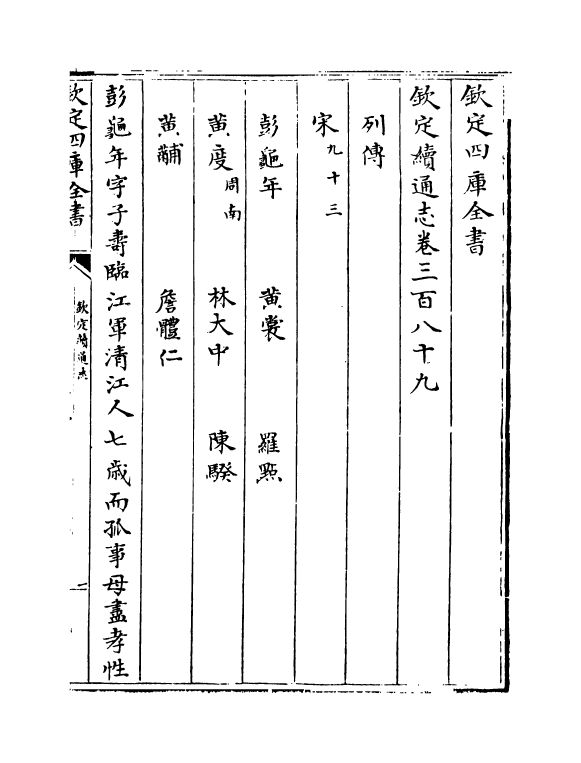 欽定四庫全書
欽定續通志卷三百八十九
列傳
宋九十三
彭龜年 黄裳 羅㸃
黄度周南 林大中 陳騤
黄黼 詹體仁
彭龜年字子壽臨江軍清江人七歲而孤事母盡孝性
欽定四庫全書
欽定續通志